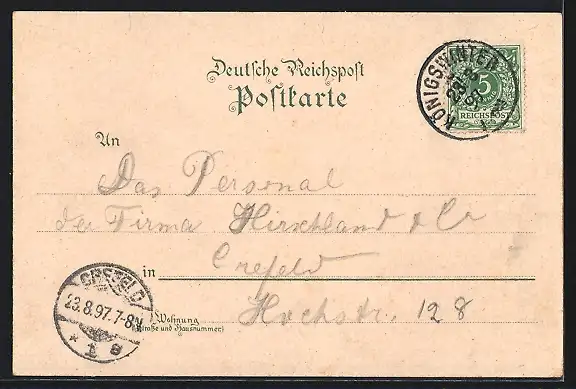 Deutsche Reichspost
Postkarte
KÖNIGSWINTER
5
REICHSPOST
An
Das Personal
der Firma Hirschland & Co
in Crefeld
Hochstr. 128
Wohnung
(Straße und Hausnummer)
CREFELD
23.8.97.7-8N
* 1 a